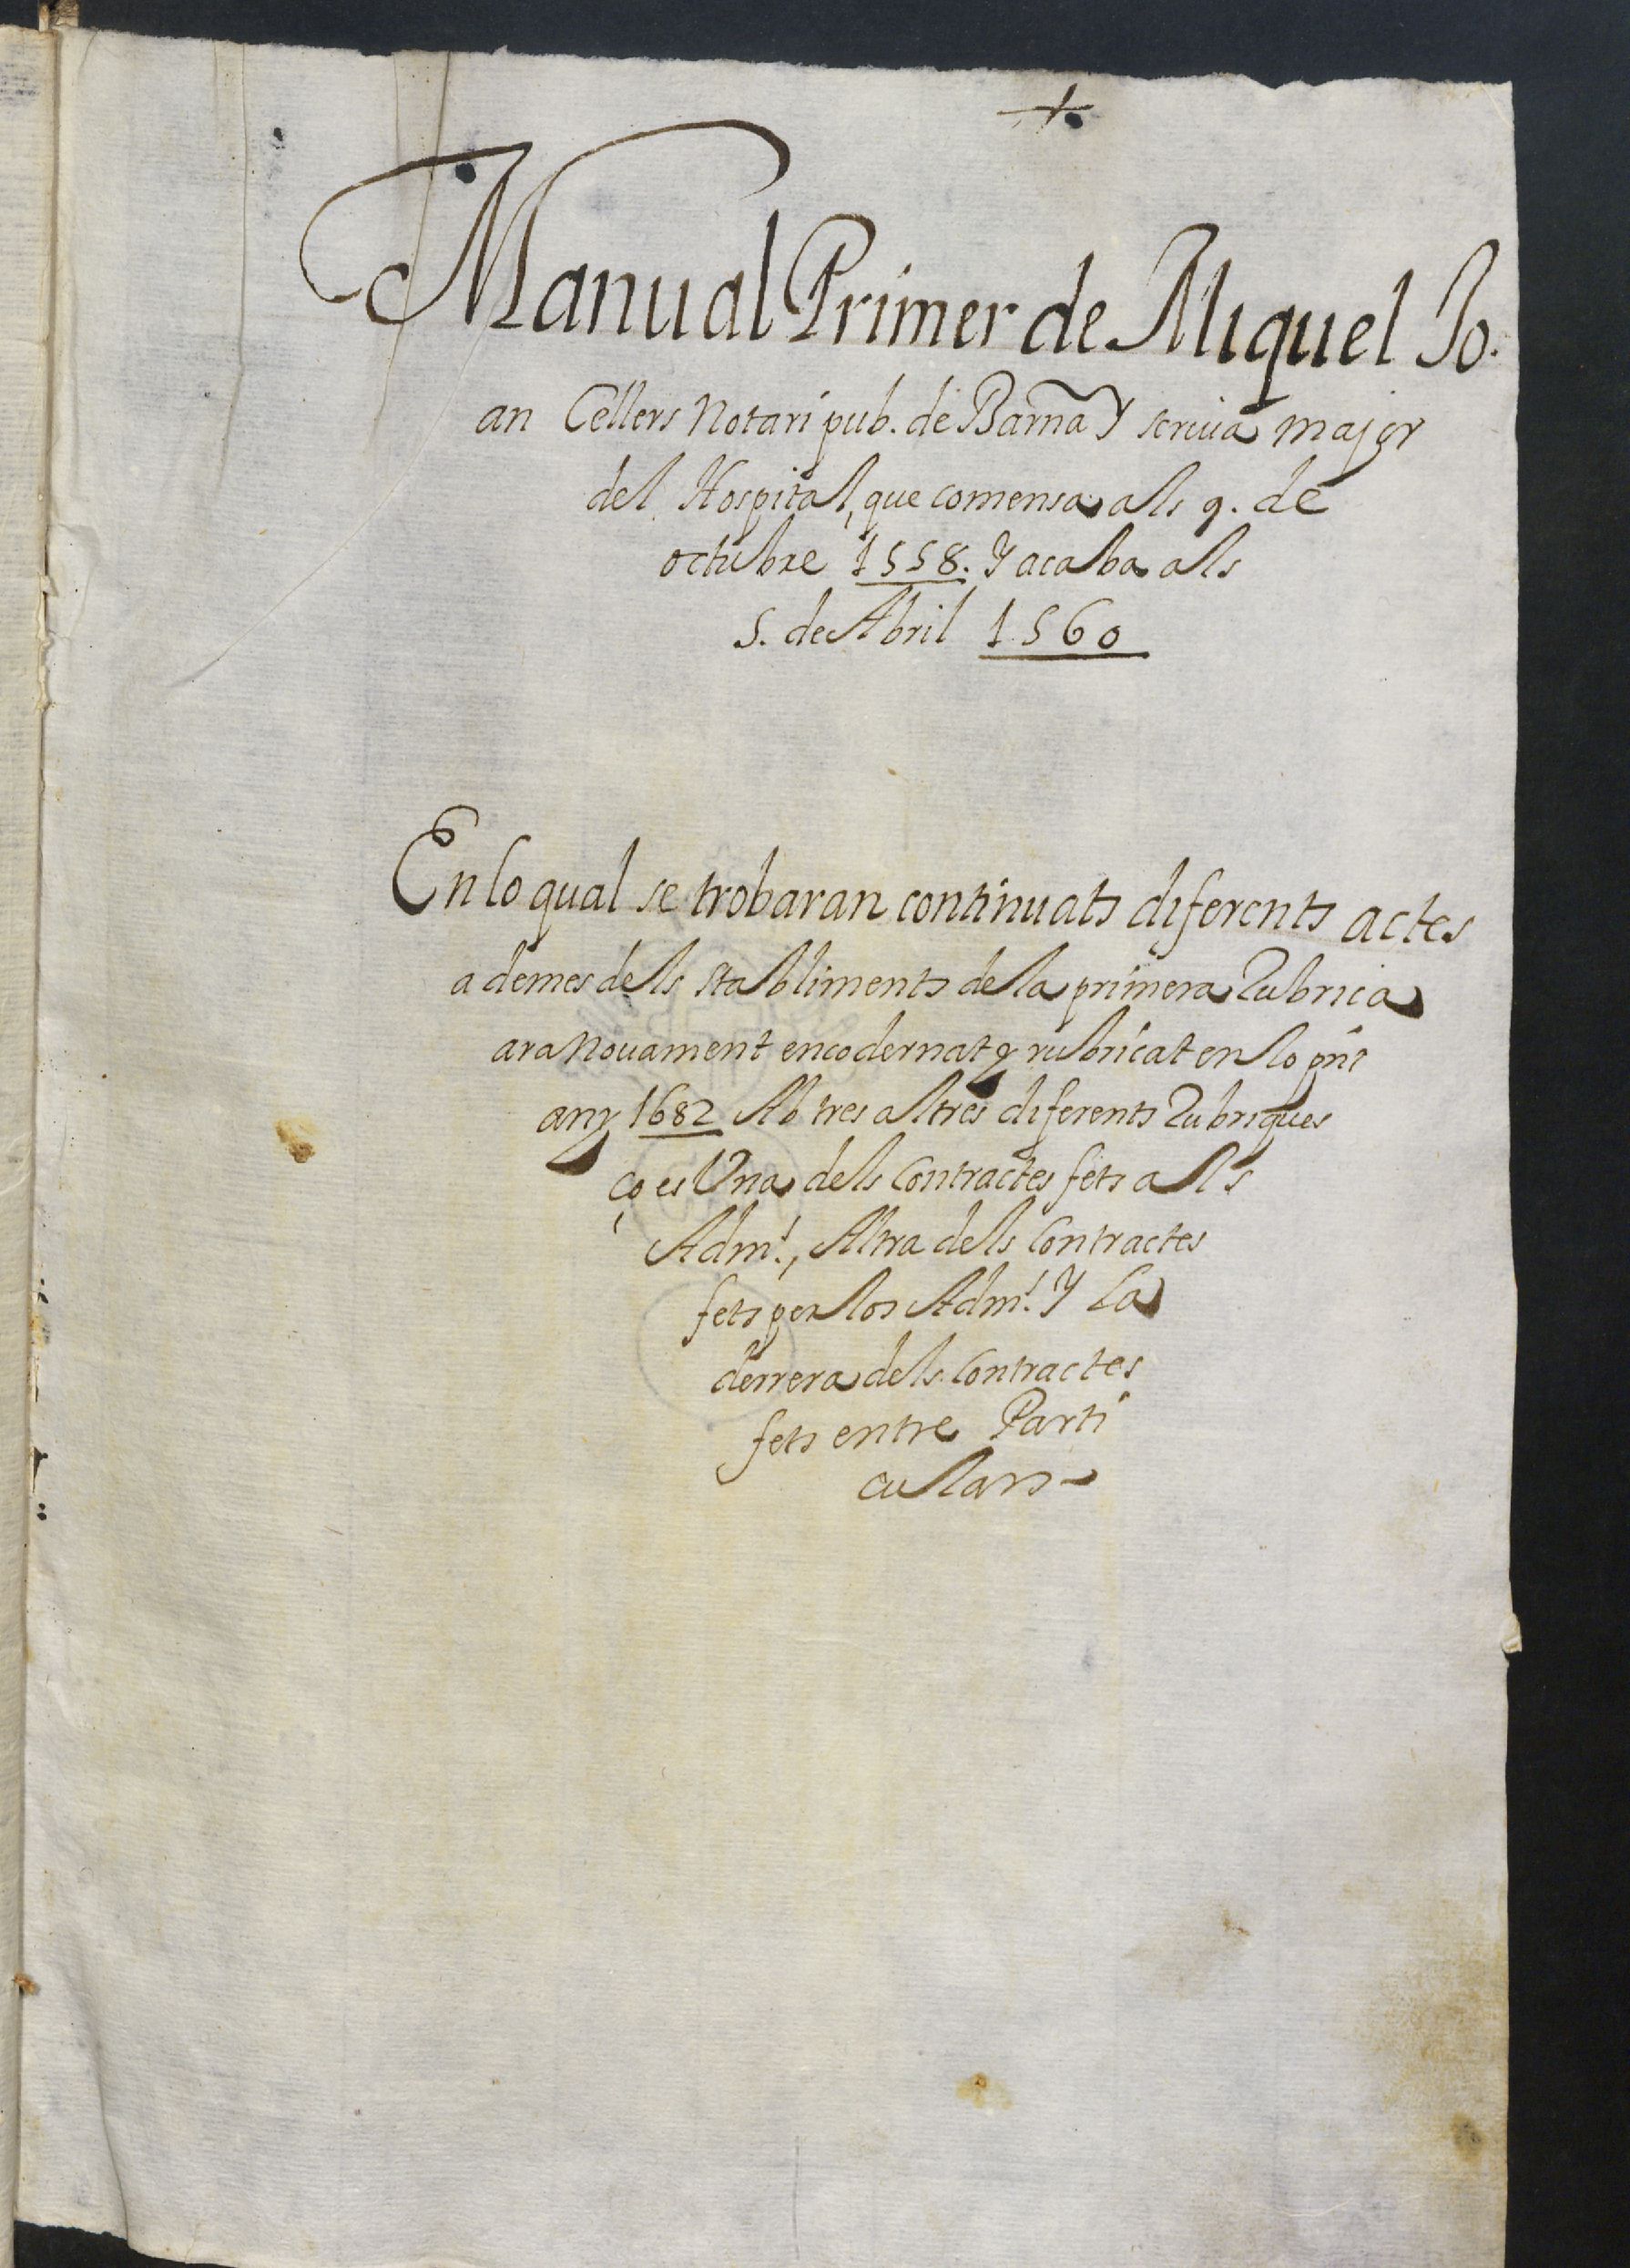 Manual Primer de Miquel Jo.
an Cellers Notari pub. de Barna Y scriua major
del Hospital, que comensa als 9. de
octubre 1558. Y acaba als
5. de Abril 1560
En lo qual se trobaran continuats diferents actes
a demes dels stabliments de la primera Rubrica
ara nouament encodernat y rubricat en lo pnt
any 1682 Ab tres altres diferents Rubriques
ço es Una dels Contractes fets als
Adm.rs, Altra dels Contractes
fets per los Adm.rs Y La
derrera dels Contractes
fets entre Parti
culars